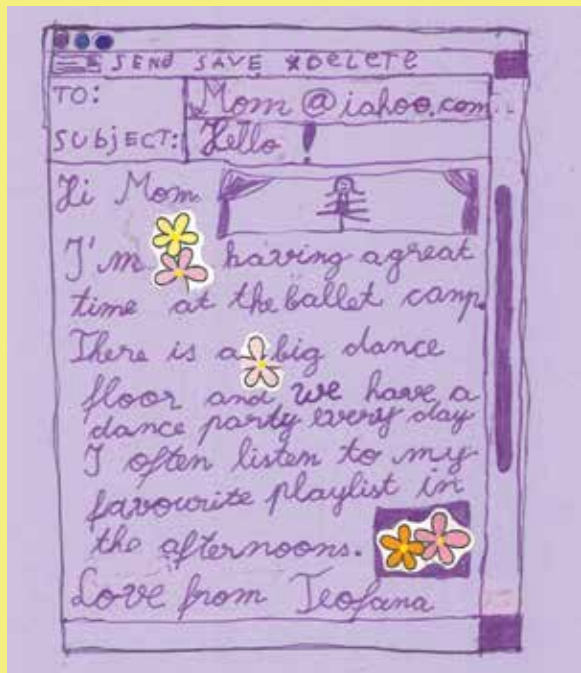 SEND SAVE xDELETE
TO: Mom@iahoo.com
SUBJECT: Hello!
Hi Mom
I'm having a great
time at the ballet camp.
There is a big dance
floor and we have a
dance party every day
I often listen to my
favourite playlist in
the afternoons.
Love from Teofana